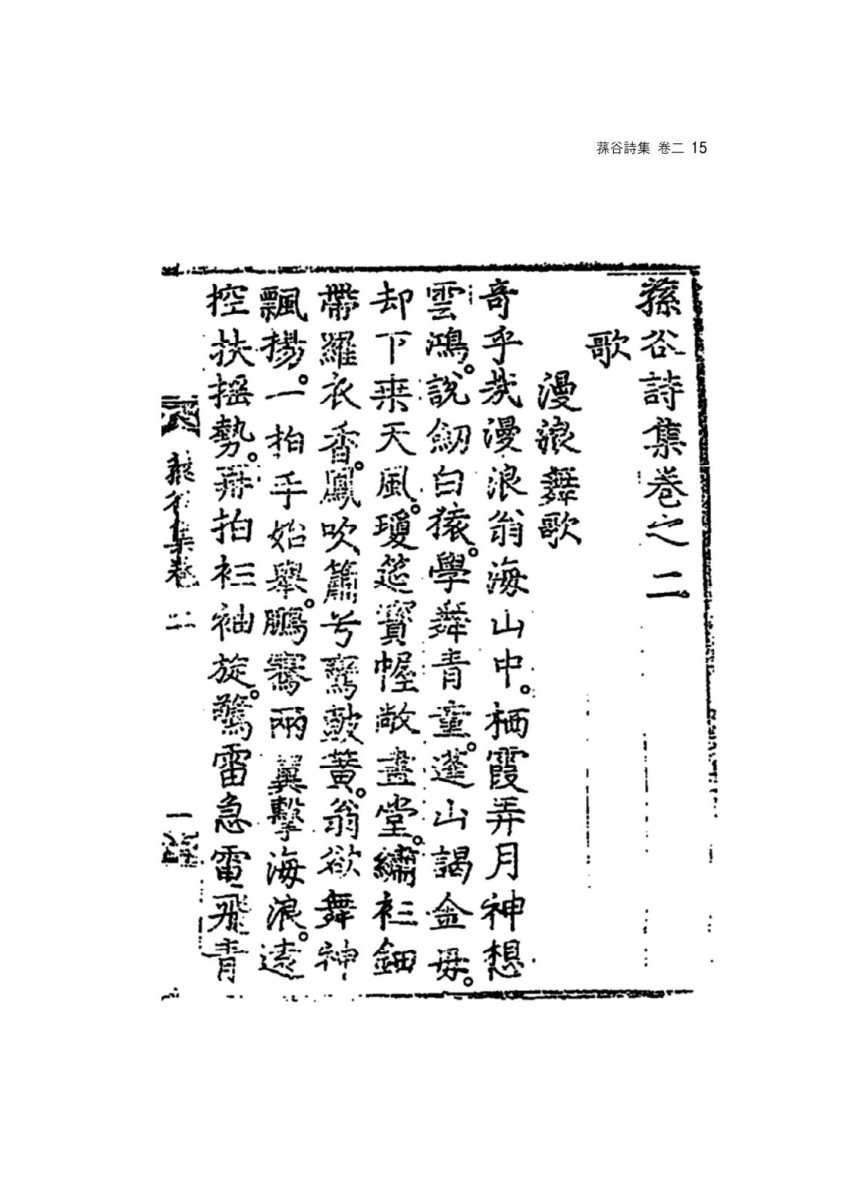 蓀谷詩集 卷二 15
蓀谷詩集卷之二
歌
漫浪舞歌
奇乎哉漫浪翁海山中。栖霞弄月神想
雲鴻。說劒白猿。學舞靑童。蓬山謁金母。
却下来天風。瓊筵寶幄敞畫堂。繡衫鈿
帶羅衣香。鳳吹簫兮鸞皷簧。翁欲舞神
飄揚。一拍手始舉。鵬騫兩翼擊海浪。遠
控扶搖勢。再拍衫袖旋。驚雷急電飛靑
蓀谷集卷二
一